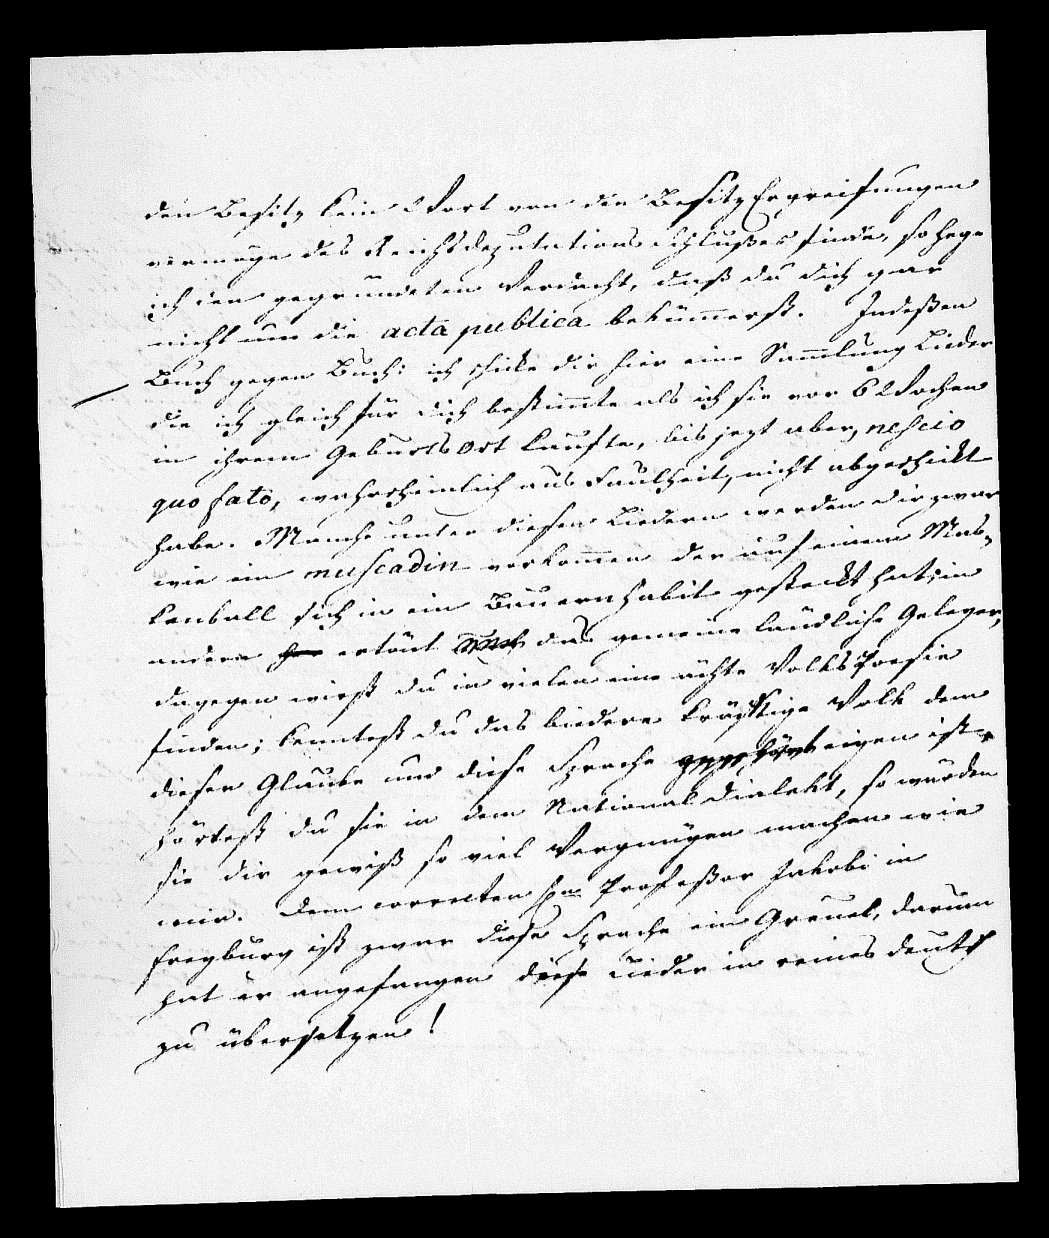 den Besitz kein Wort von den BesitzErgreifungen
vermöge des Reichsdeputations Schlußes finde, so hege
ich den gegründeten Verdacht, daß du dich gar
nicht um die acta publica bekümmerst. Indeßen
Buch gegen Buch: ich schicke dir hier eine Sammlung Lieder
die ich gleich für dich bestimmte als ich sie vor 6 Wochen
in ihrem GeburtsOrt kaufte, bis jezt aber, nescio
quo fato, wahrscheinlich aus Faulheit, nicht abgeschickt
habe. Manche unter diesen Liedern werden dir zwar
wie ein muscadin vorkommen der auf einem Mas-
kenball sich in ein Bauernhabit gesteckt hat; in
andern ertönt das gemeine ländliche Geleyer,
dagegen wirst du in vielen eine ächte VolksPoesie
finden; kenntest du das biedere kräftige Volk dem
dieser Glaube und diese Sprache eigen ist,
hörtest du sie in dem Nationaldialekt, so würden
sie dir gewiß so viel Vergnügen machen wie
mir. Dem correcten Hn Profeßor Jakobi in
Freyburg ist zwar diese Sprache ein Greuel, darum
hat er angefangen diese Lieder in reines deutsch
zu übersetzen!